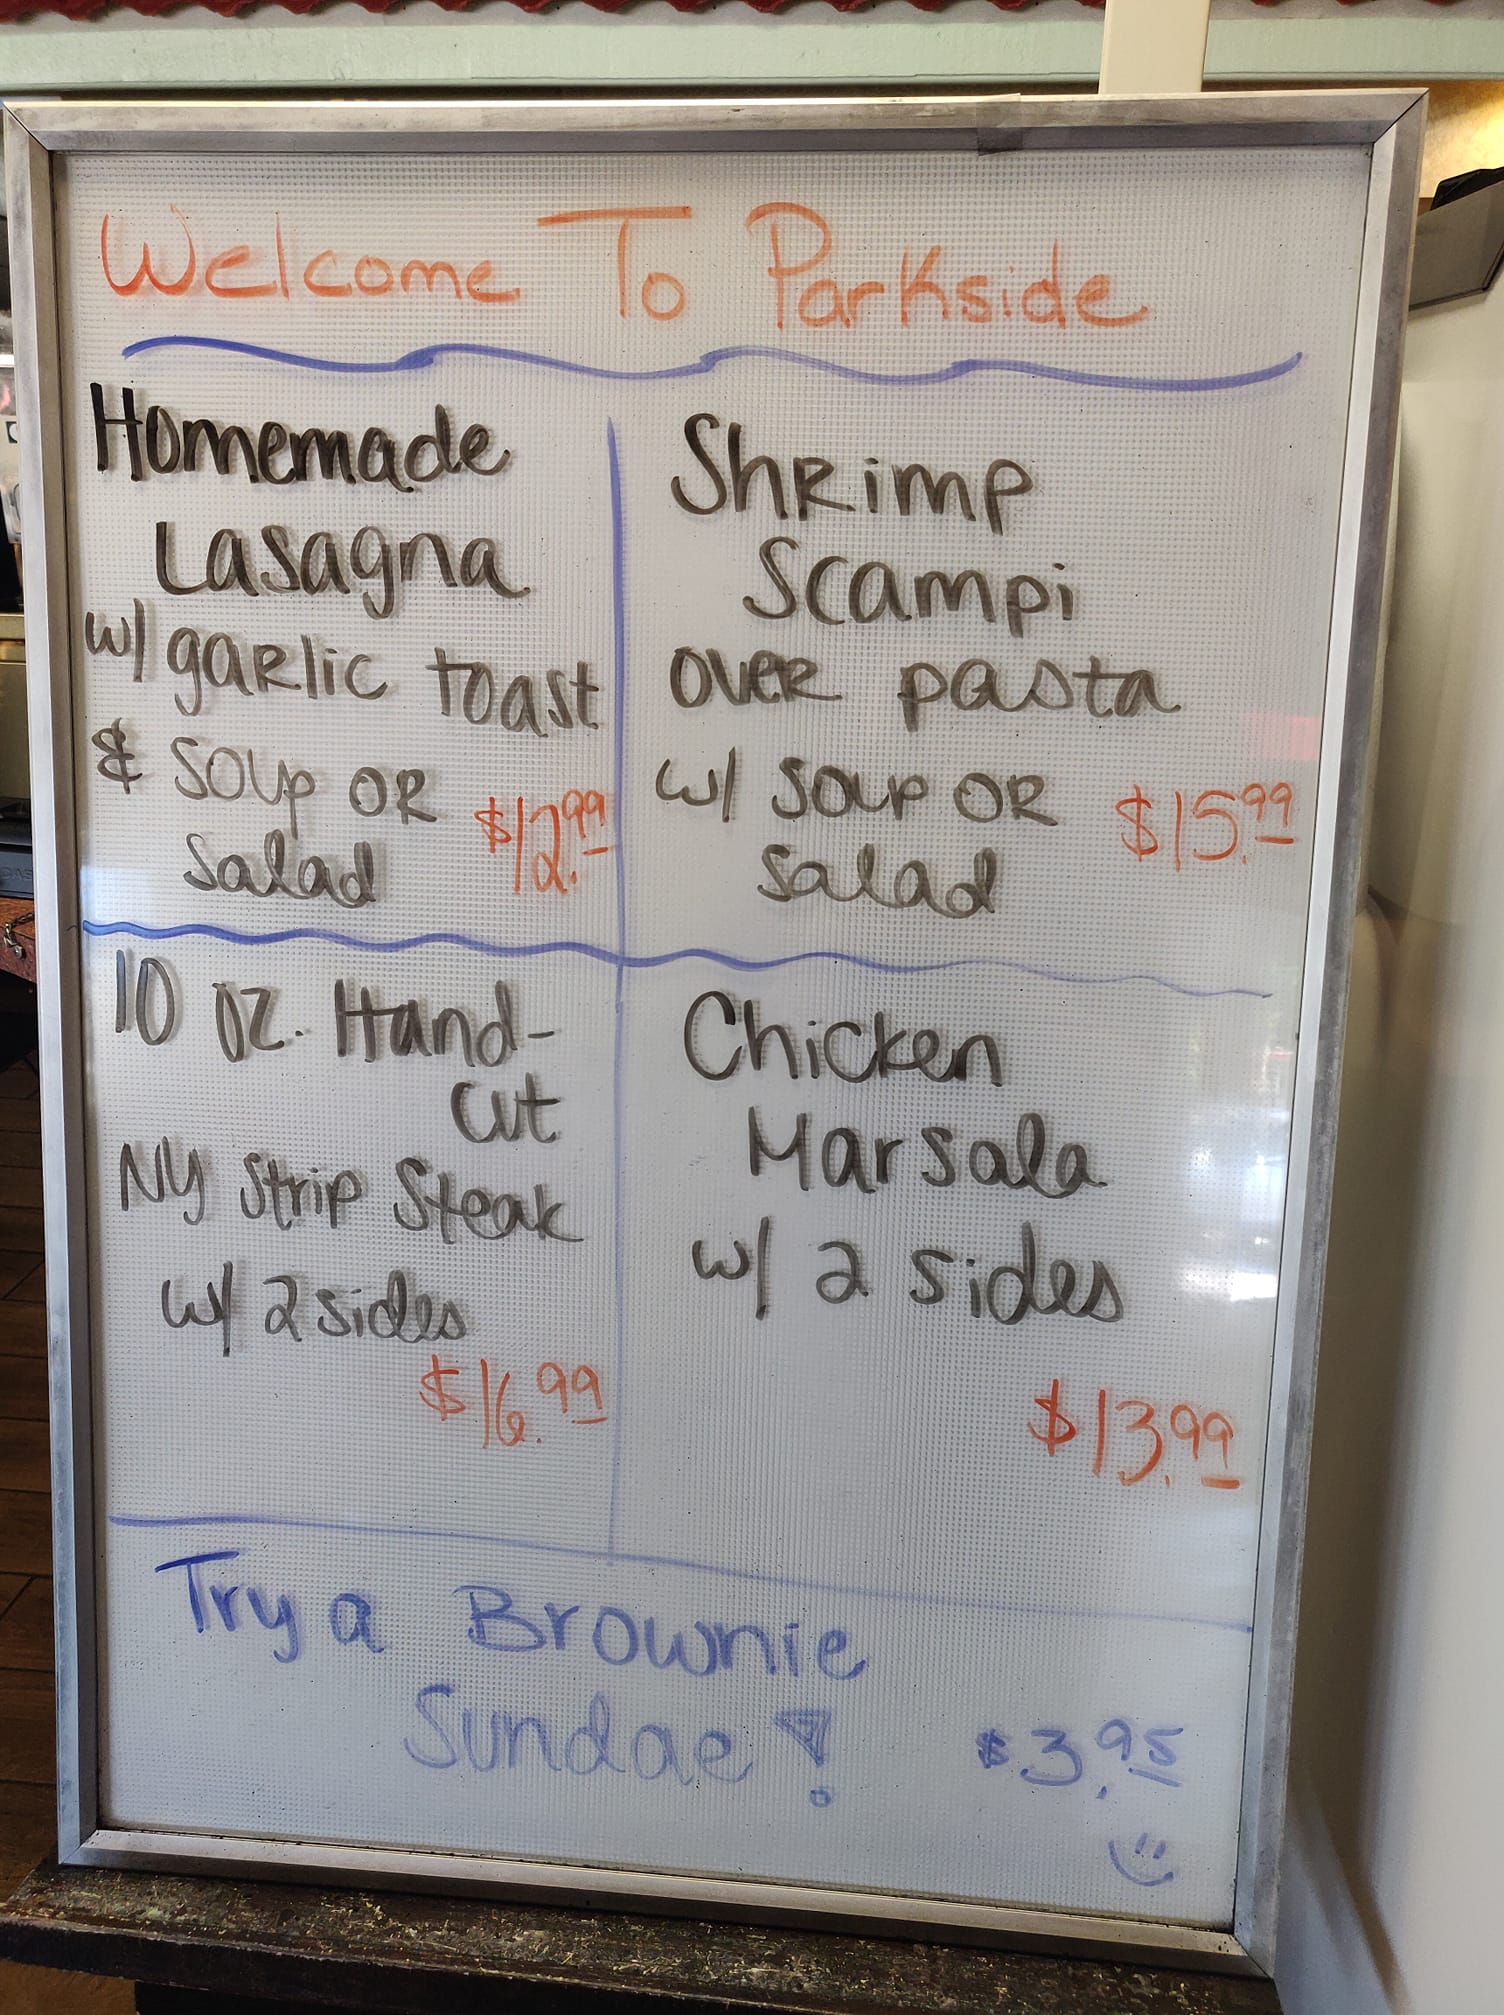 Welcome To Parkside
Homemade
Lasagna
w/ garlic toast
& soup or
salad
$12.99
Shrimp
Scampi
over pasta
w/ soup or
salad
$15.99
10 oz. Hand-
cut
NY Strip Steak
w/ 2 sides
$16.99
Chicken
Marsala
w/ 2 sides
$13.99
Try a Brownie
Sundae!
$3.95